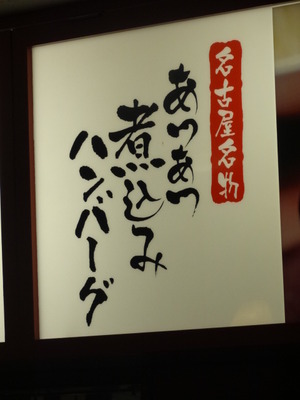 名古屋名物
あつあつ
煮込み
ハンバーグ